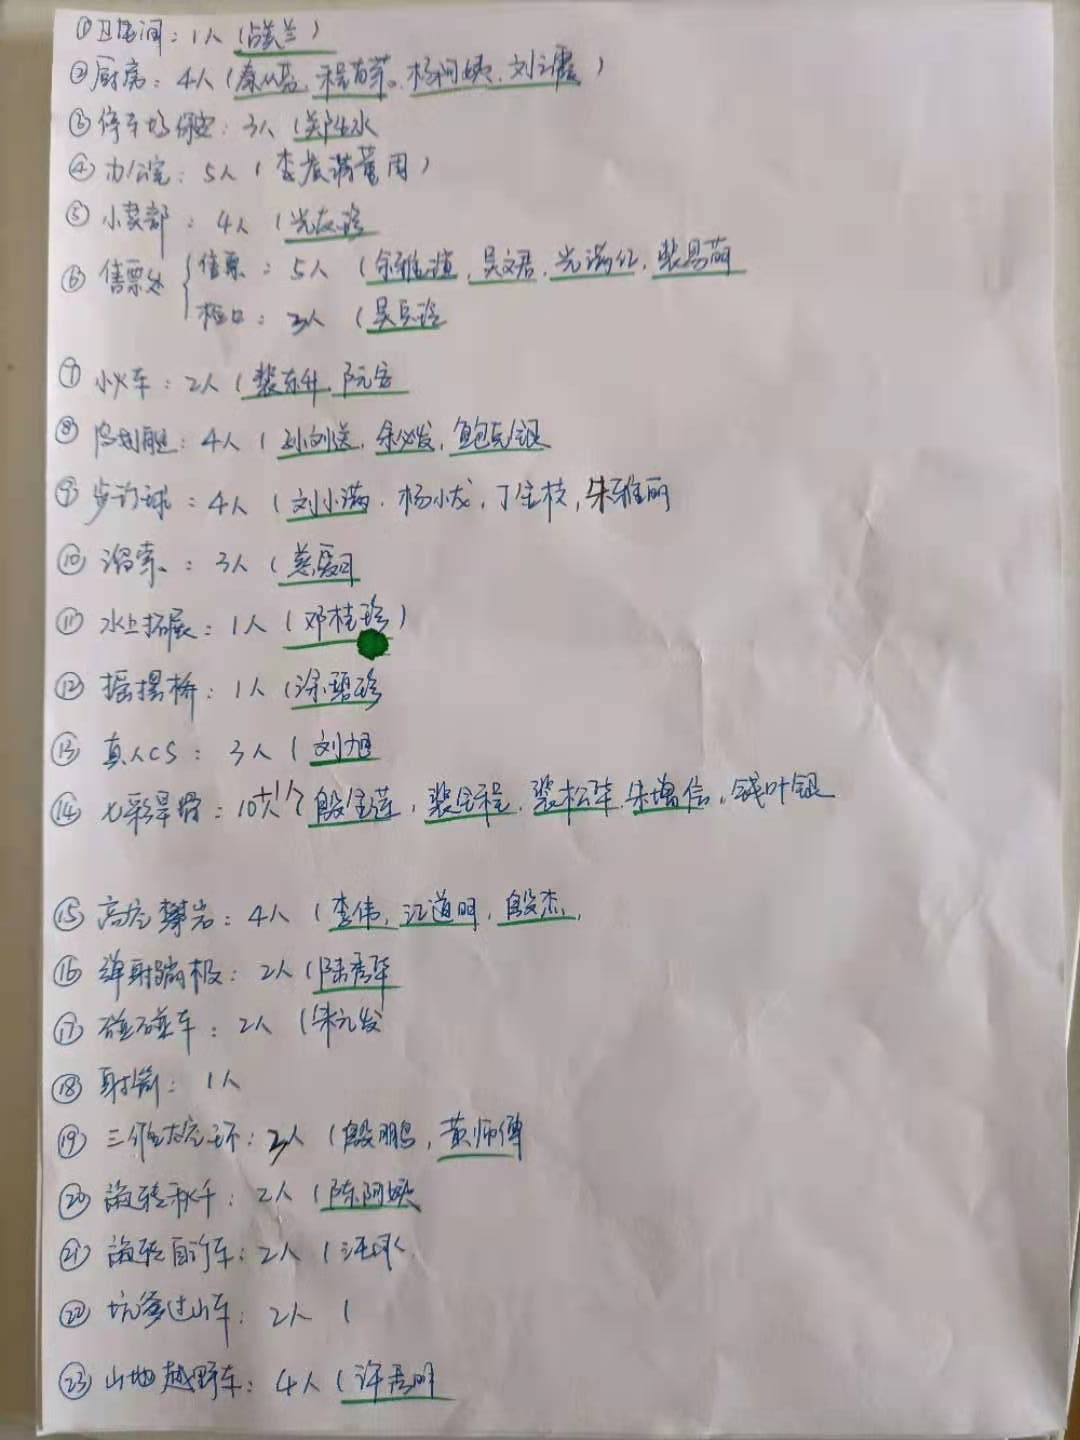 ①卫生间：1人（占美兰）
②厨房：4人（ 程苗苹。杨阿姨、刘立霞）
③停车场保安：3人（ 水
④办公室：5人（李
⑤小卖部：4人（光友珍
⑥售票处 售票：5人（余雅 ，吴文君，光满红，裴易萌
检口：3人（吴兵玲
⑦小火车：2人（裴东升、阮宏
⑧ 4人（孙刘送，余必发，鲍克银
⑨步行球：4人（刘小满、杨小龙，丁金枝，朱雅丽
⑩溜索：3人（
⑪水上拓展：1人（邓桂珍）
⑫摇摆桥：1人（涂碧珍
⑬真人CS：3人（刘旭
⑭七彩旱滑：10人+1个（殷金莲，裴金程，裴松华，朱增信，钱叶银
⑮高空攀岩：4人（李伟，江道明，殷杰，
⑯弹射蹦极：2人（陆秀华
⑰碰碰车：2人（朱元发
⑱射箭：1人
⑲三维太空环：3人（殷鹏，黄师傅
⑳旋转秋千：2人（陈阿姨
㉑旋转自行车：2人（汪
㉒坑爹过山车：2人（
㉓山地越野车：4人（许秀明